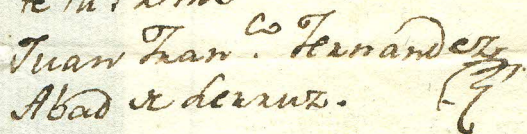 Juan Fran.co Fernandez
Abad de Lerruz.